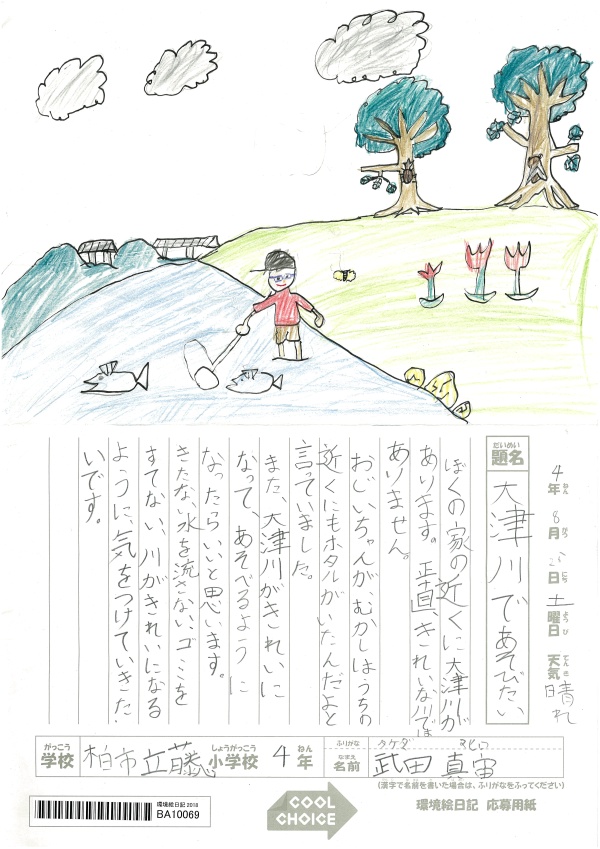 4年 8月 25日 土曜日 天気 晴れ
ねん がつ にち ようび てんき
だいめい
題名
大津川であそびたい
ぼくの家の近くに大津川が
あります。正直、きれいな川では
ありません。
おじいちゃんが、むかしはうちの
近くにもホタルがいたんだよと
言っていました。
また、大津川がきれいに
なって、あそべるように
なったらいいと思います。
きたない水を流さない、ゴミを
すてない、川がきれいになる
ように、気をつけていきた
いです。
がっこう しょうがっこう ねん
学校 柏市立藤心小学校 4年
ふりがな タケダ マヒロ
なまえ
名前 武田 真宙
(漢字で名前を書いた場合は、ふりがなをふってください)
環境絵日記 2018
BA10069
COOL
CHOICE
環境絵日記 応募用紙